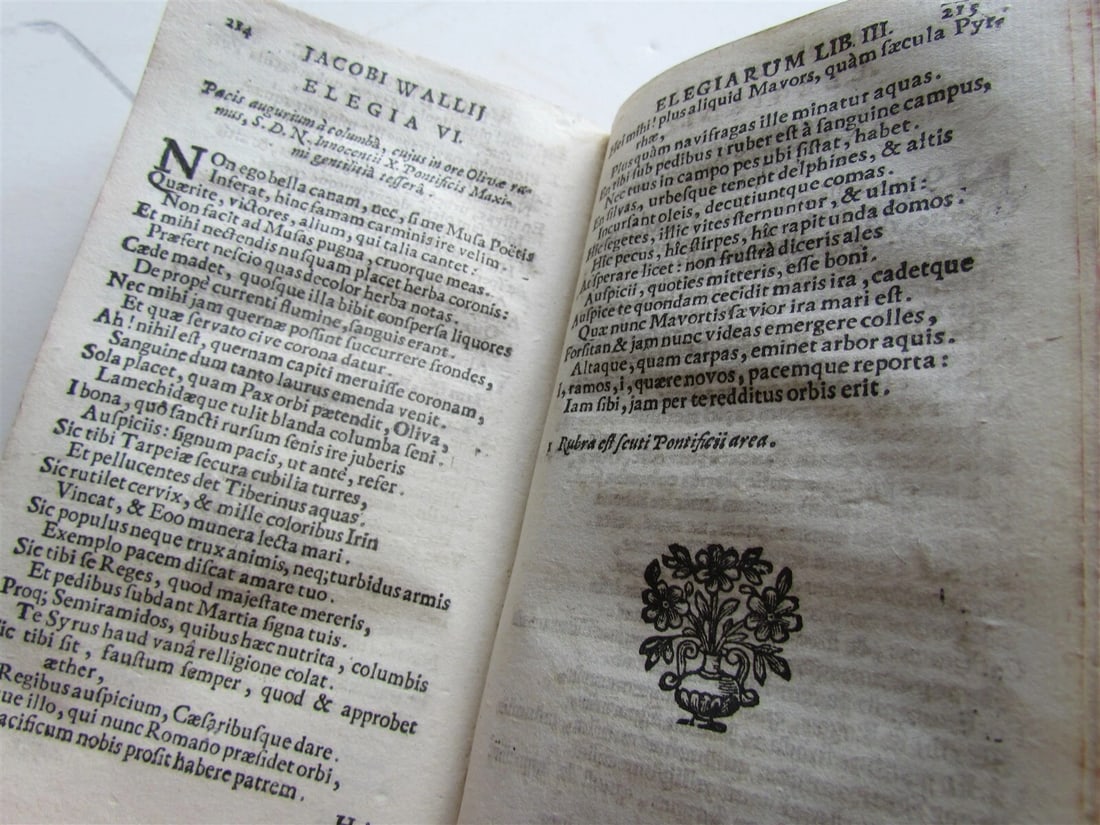 214
JACOBI WALLIJ
ELEGIA VI.
Pacis augurium à columbâ, cujus in ore Olivæ ra-
mus, S. D. N. Innocentii X. Pontificis Maxi-
mi gentilitia tessera.
NOn ego bella canam, nec, si me Musa Poëtis
Inferat, hinc famam carminis ire velim.
Quærite, victores, alium, qui talia cantet:
Non facit ad Musas pugna, cruorque meas.
Et mihi nectendis nusquam placet herba coronis:
Præfert nescio quas decolor herba notas.
Cæde madet, quosque illa bibit conspersa liquores
De prope currenti flumine, sanguis erant.
Nec mihi jam quernæ possint succurrere frondes,
Et quæ servato cive corona datur.
Ah! nihil est, quernam capiti meruisse coronam,
Sanguine dum tanto laurus emenda venit.
Sola placet, quam Pax orbi prætendit, Oliva,
Lamechidæque tulit blanda columba seni.
I bona, quò sancti rursum senis ire juberis
Auspiciis: signum pacis, ut antè, refer.
Sic tibi Tarpeiæ secura cubilia turres,
Et pellucentes det Tiberinus aquas.
Sic rutilet cervix, & mille coloribus Irin
Vincat, & Eoo munera lecta mari.
Sic populus neque trux animis, neq; turbidus armis
Exemplo pacem discat amare tuo.
Sic tibi se Reges, quod majestate mereris,
Et pedibus subdant Martia signa tuis.
Proq; Semiramidos, quibus hæc nutrita, columbis
Te Syrus haud vanâ relligione colat.
Sic tibi sit, faustum semper, quod & approbet
æther,
Regibus auspicium, Cæsaribusque dare.
que illo, qui nunc Romano præsidet orbi,
acificum nobis prosit habere patrem.
ELEGIARUM LIB. III. 215
Hei mihi! plus aliquid Mavors, quàm sæcula Pyr-
rhæ,
Plus quàm navifragas ille minatur aquas.
En tibi sub pedibus ruber est à sanguine campus,
Nec tuus in campo pes ubi sistat, habet.
En silvas, urbesque tenent delphines, & altis
Incursant oleis, decutiuntque comas.
Hìc segetes, illic vites sternuntur, & ulmi:
Hìc pecus, hîc stirpes, hîc rapit unda domos.
At sperare licet: non frustrà diceris ales
Auspicii, quoties mitteris, esse boni.
Auspice te quondam cecidit maris ira, cadetque
Quæ nunc Mavortis sævior ira mari est.
Forsitan & jam nunc videas emergere colles,
Altaque, quam carpas, eminet arbor aquis.
I, ramos, i, quære novos, pacemque reporta:
Iam sibi, jam per te redditus orbis erit.
1 Rubra est scuti Pontificii area.